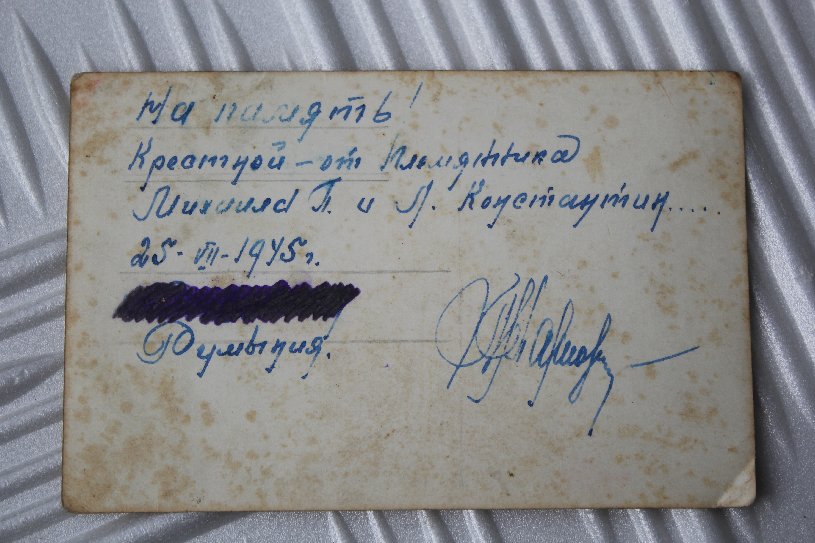 На память!
Крестной – от Племянника
Михаила П. и Л. Константин.....
25-VII-1945г.
Румыния.